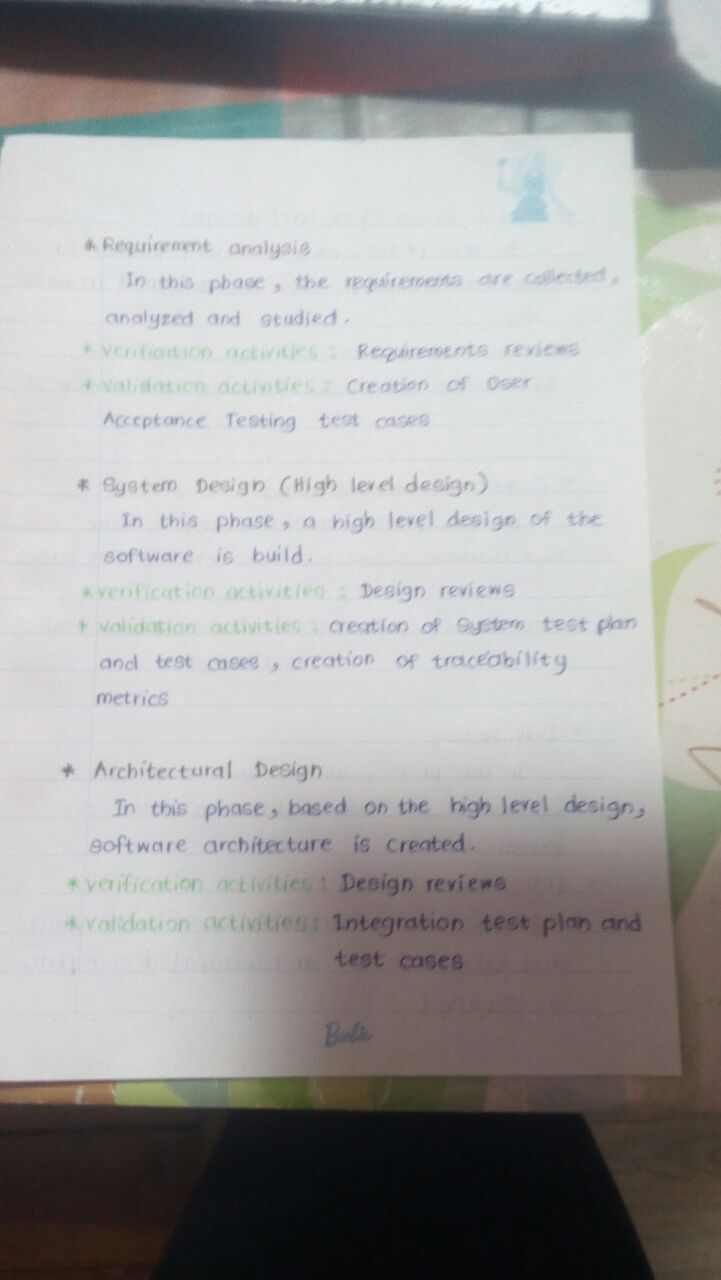 * Requirement analysis
In this phase, the requirements are collected,
analyzed and studied.
* verification activities : Requirements reviews
* validation activities : Creation of User
Acceptance Testing test cases
* System Design (High level design)
In this phase, a high level design of the
software is build.
* verification activities : Design reviews
* validation activities : creation of System test plan
and test cases, creation of traceability
metrics
* Architectural Design
In this phase, based on the high level design,
software architecture is created.
* verification activities : Design reviews
* validation activities : Integration test plan and
test cases
Barbie